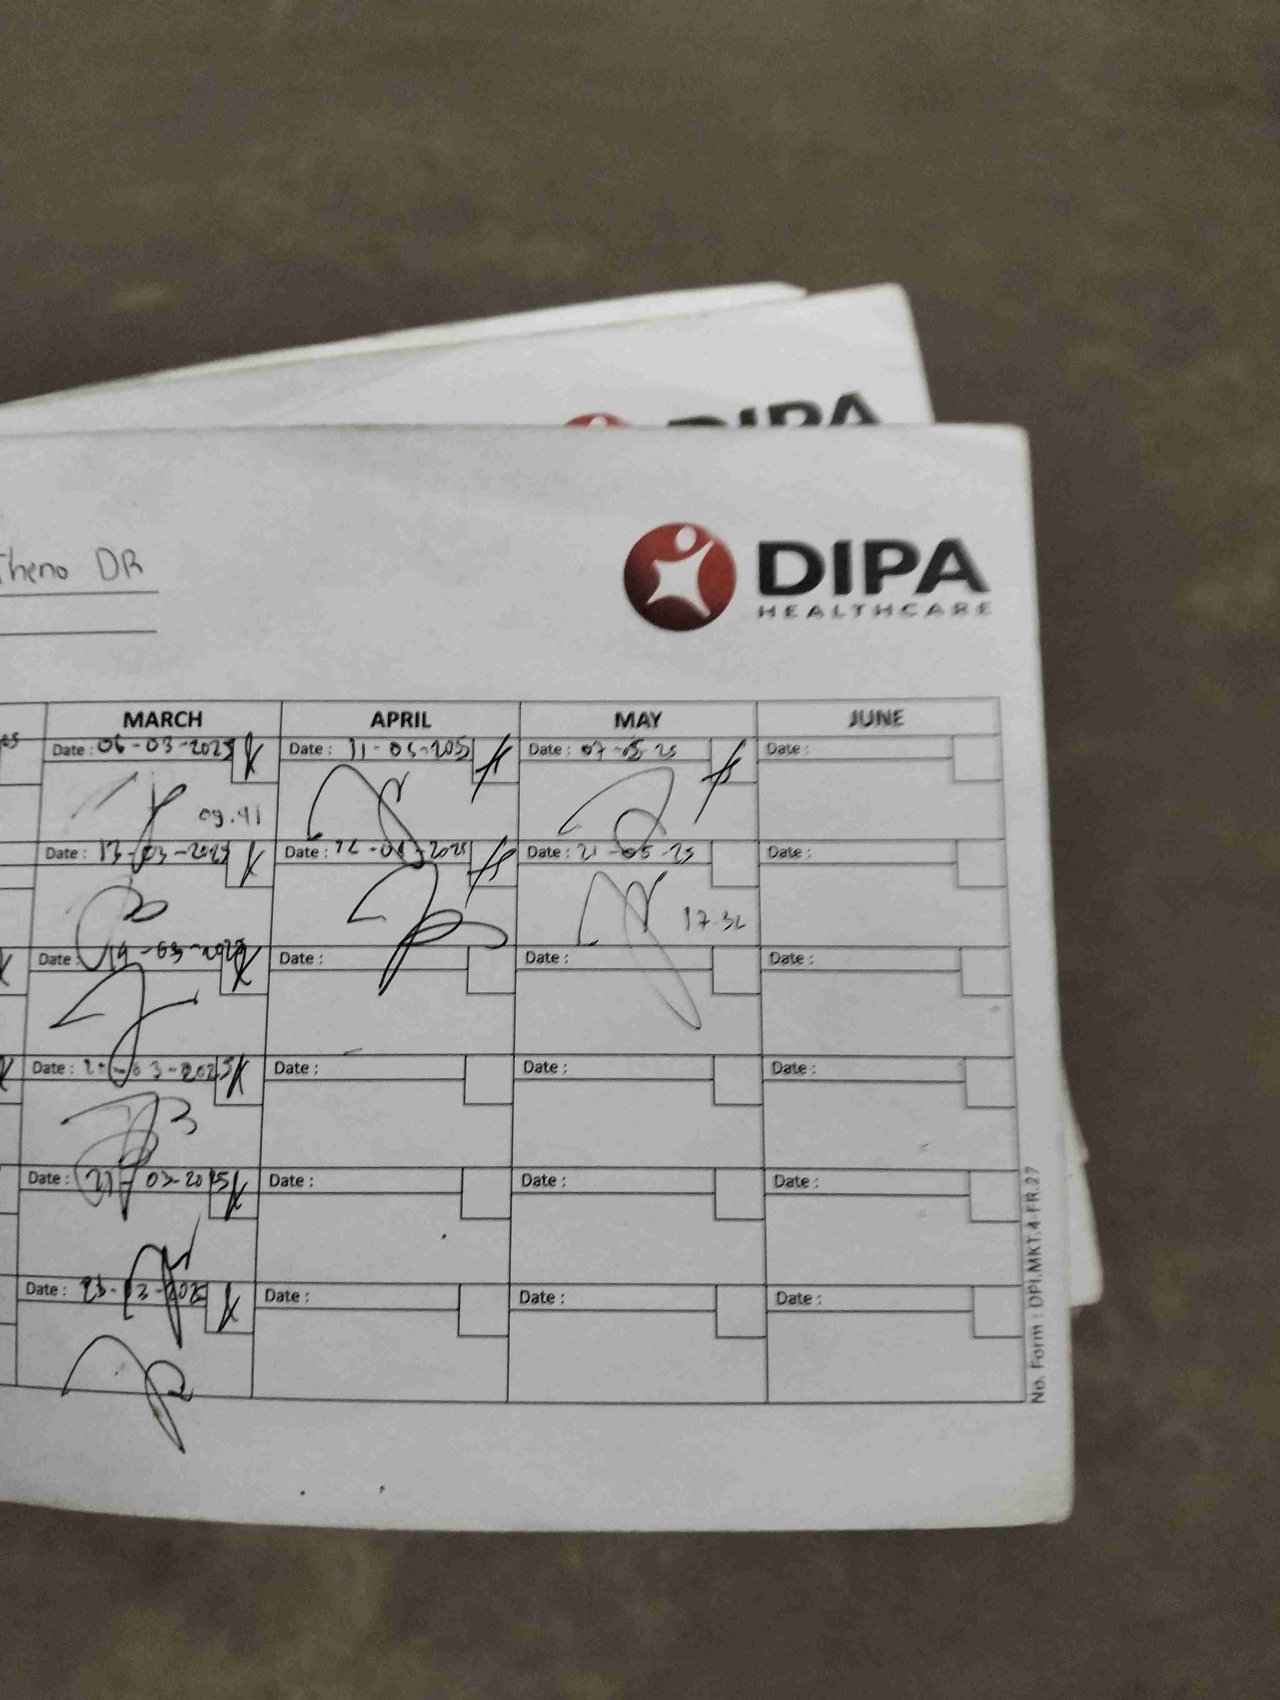 DIPA
Theno DR
DIPA
HEALTHCARE
MARCH APRIL MAY JUNE
Date : 06-03-2025 Date : 11-04-205 Date : 07-05-25 Date :
09.41
Date : 13-03-2025 Date : -2025 Date : 21-05-25 Date :
17.32
Date : 19-03-2025 Date : Date : Date :
Date : -03-2025 Date : Date : Date :
Date : 21-03-2025 Date : Date : Date :
Date : Date : Date : Date :
No. Form : DPI.MKT.4-FR.27